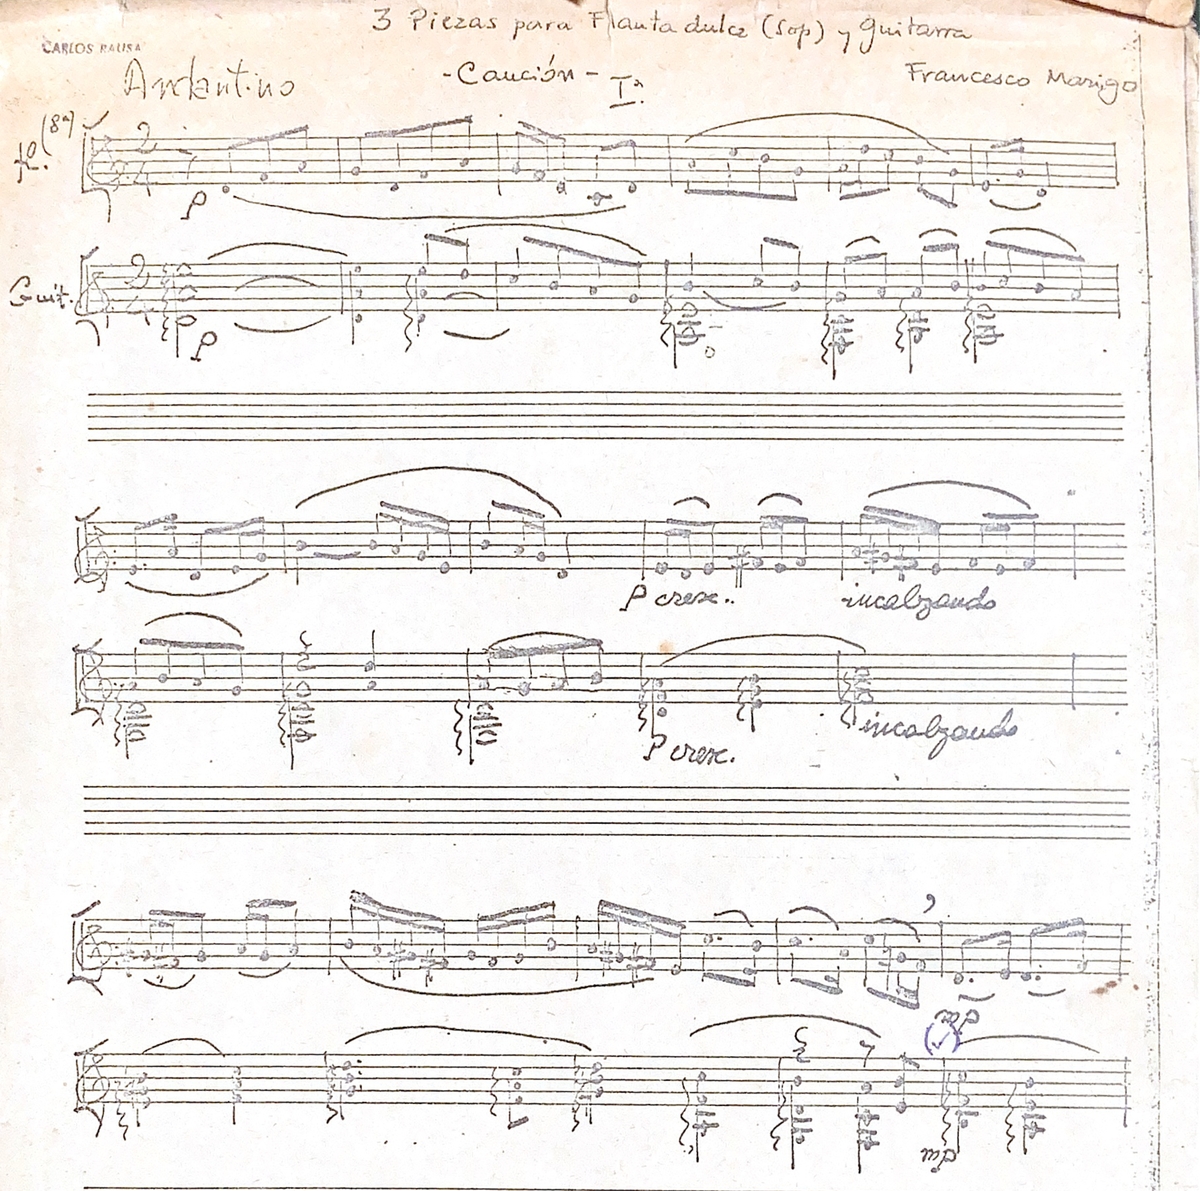 3 Piezas para Flauta dulce (Sop) y guitarra
CARLOS RAUSA
Andantino
- Canción -
Iª.
Francesco Marigo
fl. (8ª)
2
4
P
Guit.
2
4
P
P cresc..
incalzando
P cresc.
incalzando